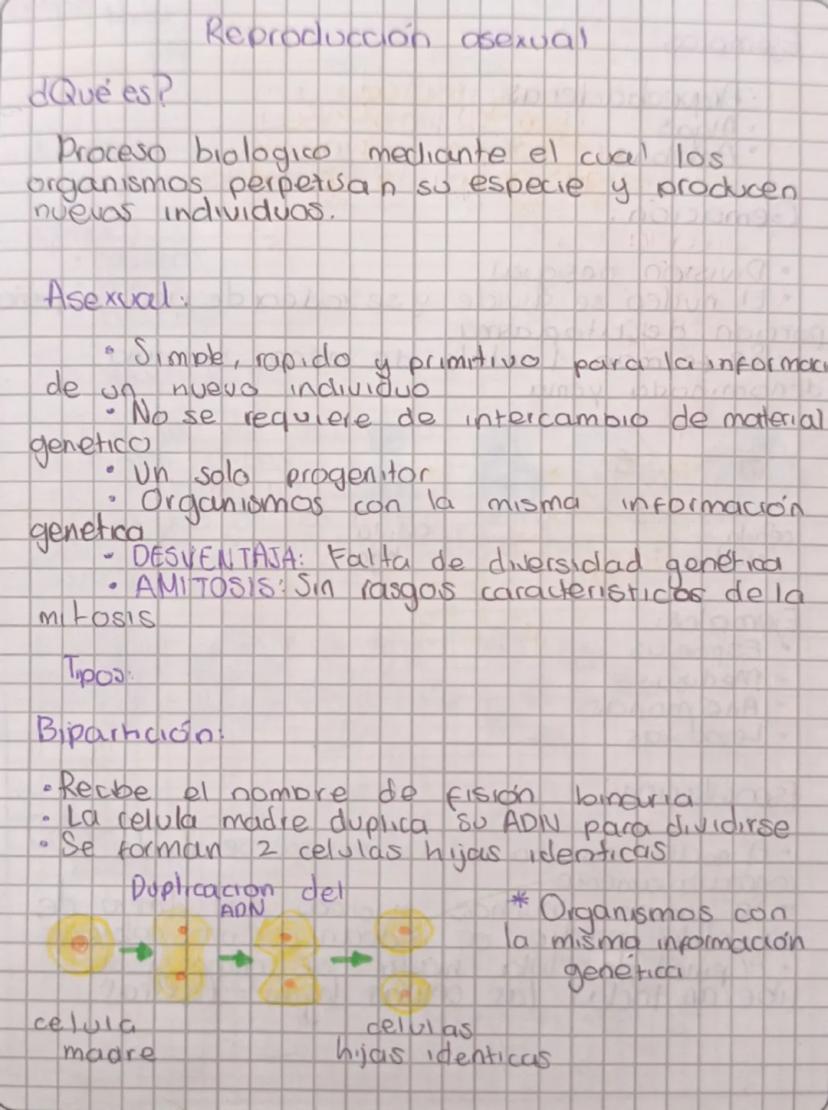 Reproducción asexual
¿Qué es?
Proceso biologico mediante el cual los
organismos perpetuan su especie y producen
nuevos individuos.
Asexual:
• Simple, rapido y primitivo para la informaci
de un nuevo individuo
• No se requiere de intercambio de material
genetico
• Un solo progenitor
• Organismos con la misma información
genetica
- DESVENTAJA: Falta de diversidad genética
• AMITOSIS: Sin rasgos caracteristicos de la
mitosis
Tipos:
Bipartición:
• Recibe el nombre de fisión binaria
• La celula madre duplica su ADN para dividirse
• Se forman 2 celulas hijas identicas
Duplicacion del
ADN
* Organismos con
la misma información
genética
celula
madre
celulas
hijas identicas